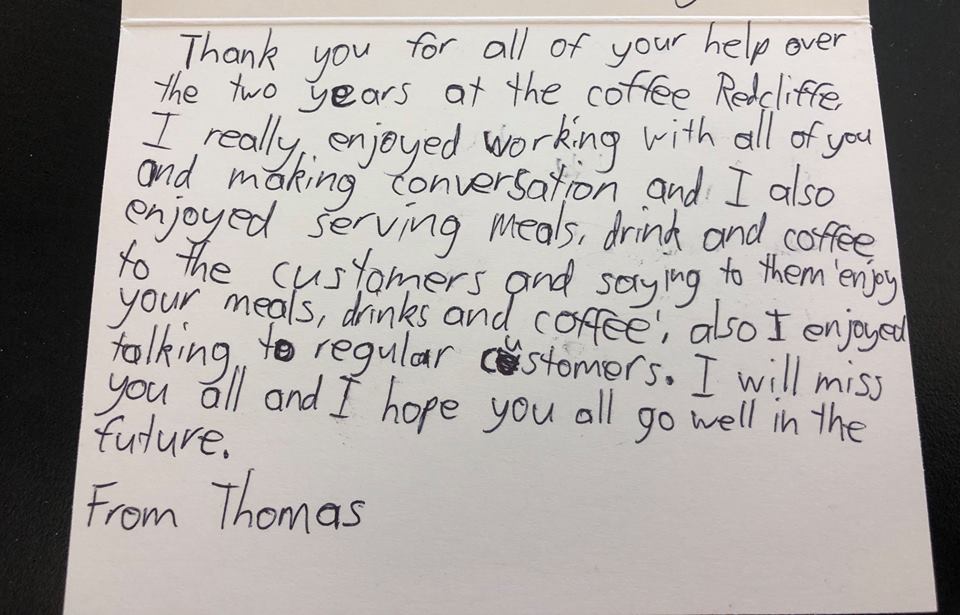 Thank you for all of your help over
the two years at the coffee Redcliffe,
I really enjoyed working with all of you
and making conversation and I also
enjoyed serving meals, drink and coffee
to the customers and saying to them 'enjoy
your meals, drinks and coffee', also I enjoyed
talking to regular customers. I will miss
you all and I hope you all go well in the
future.
From Thomas